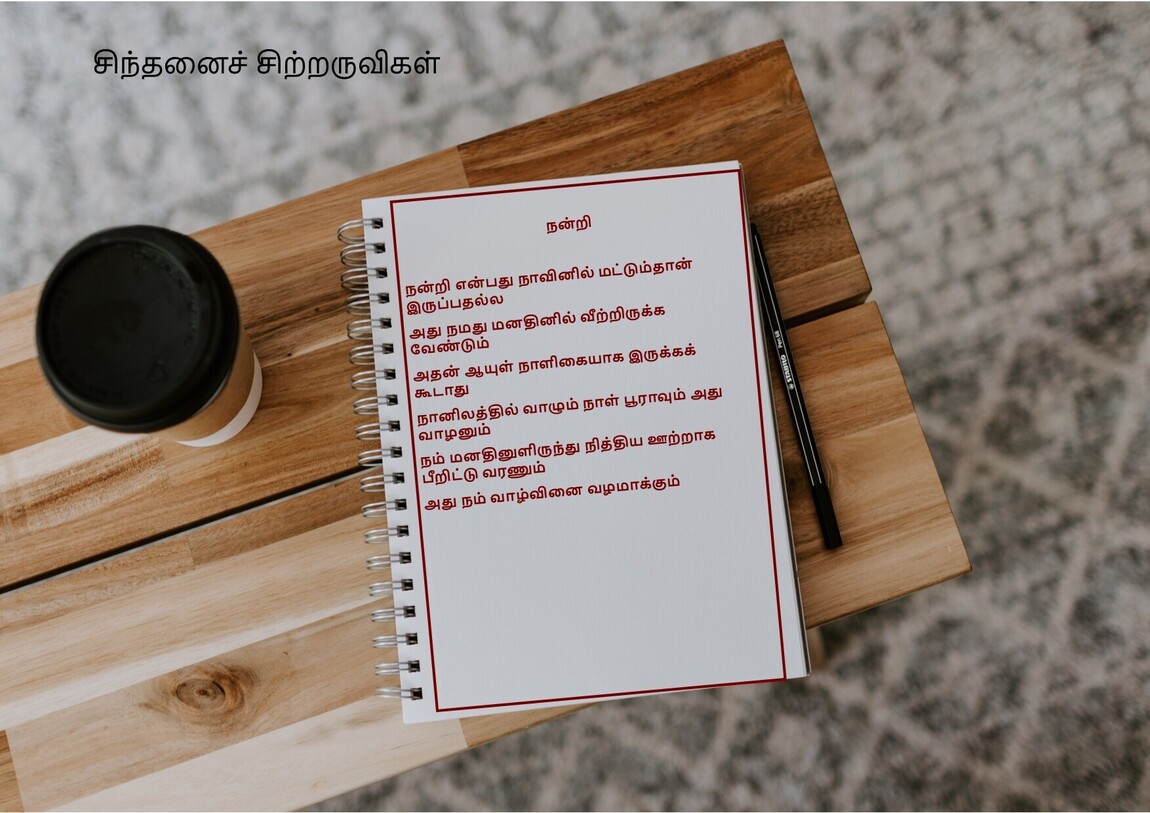 சிந்தனைச் சிற்றருவிகள்
நன்றி
நன்றி என்பது நாவினில் மட்டும்தான்
இருப்பதல்ல
அது நமது மனதினில் வீற்றிருக்க
வேண்டும்
அதன் ஆயுள் நாளிகையாக இருக்கக்
கூடாது
நானிலத்தில் வாழும் நாள் பூராவும் அது
வாழனும்
நம் மனதினுளிருந்து நித்திய ஊற்றாக
பீறிட்டு வரணும்
அது நம் வாழ்வினை வழமாக்கும்
STABILO